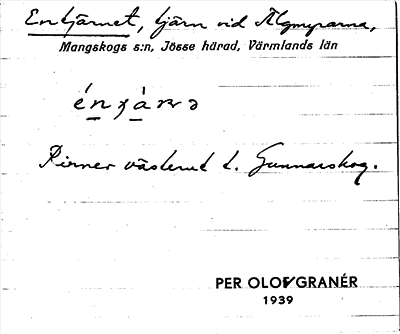 Entjärnet, tjärn vid Älgmyrarna,
Mangskogs s:n, Jösse härad, Värmlands län
Rinner västerut t. Gunnarskog.
PER OLOF GRANÉR
1939